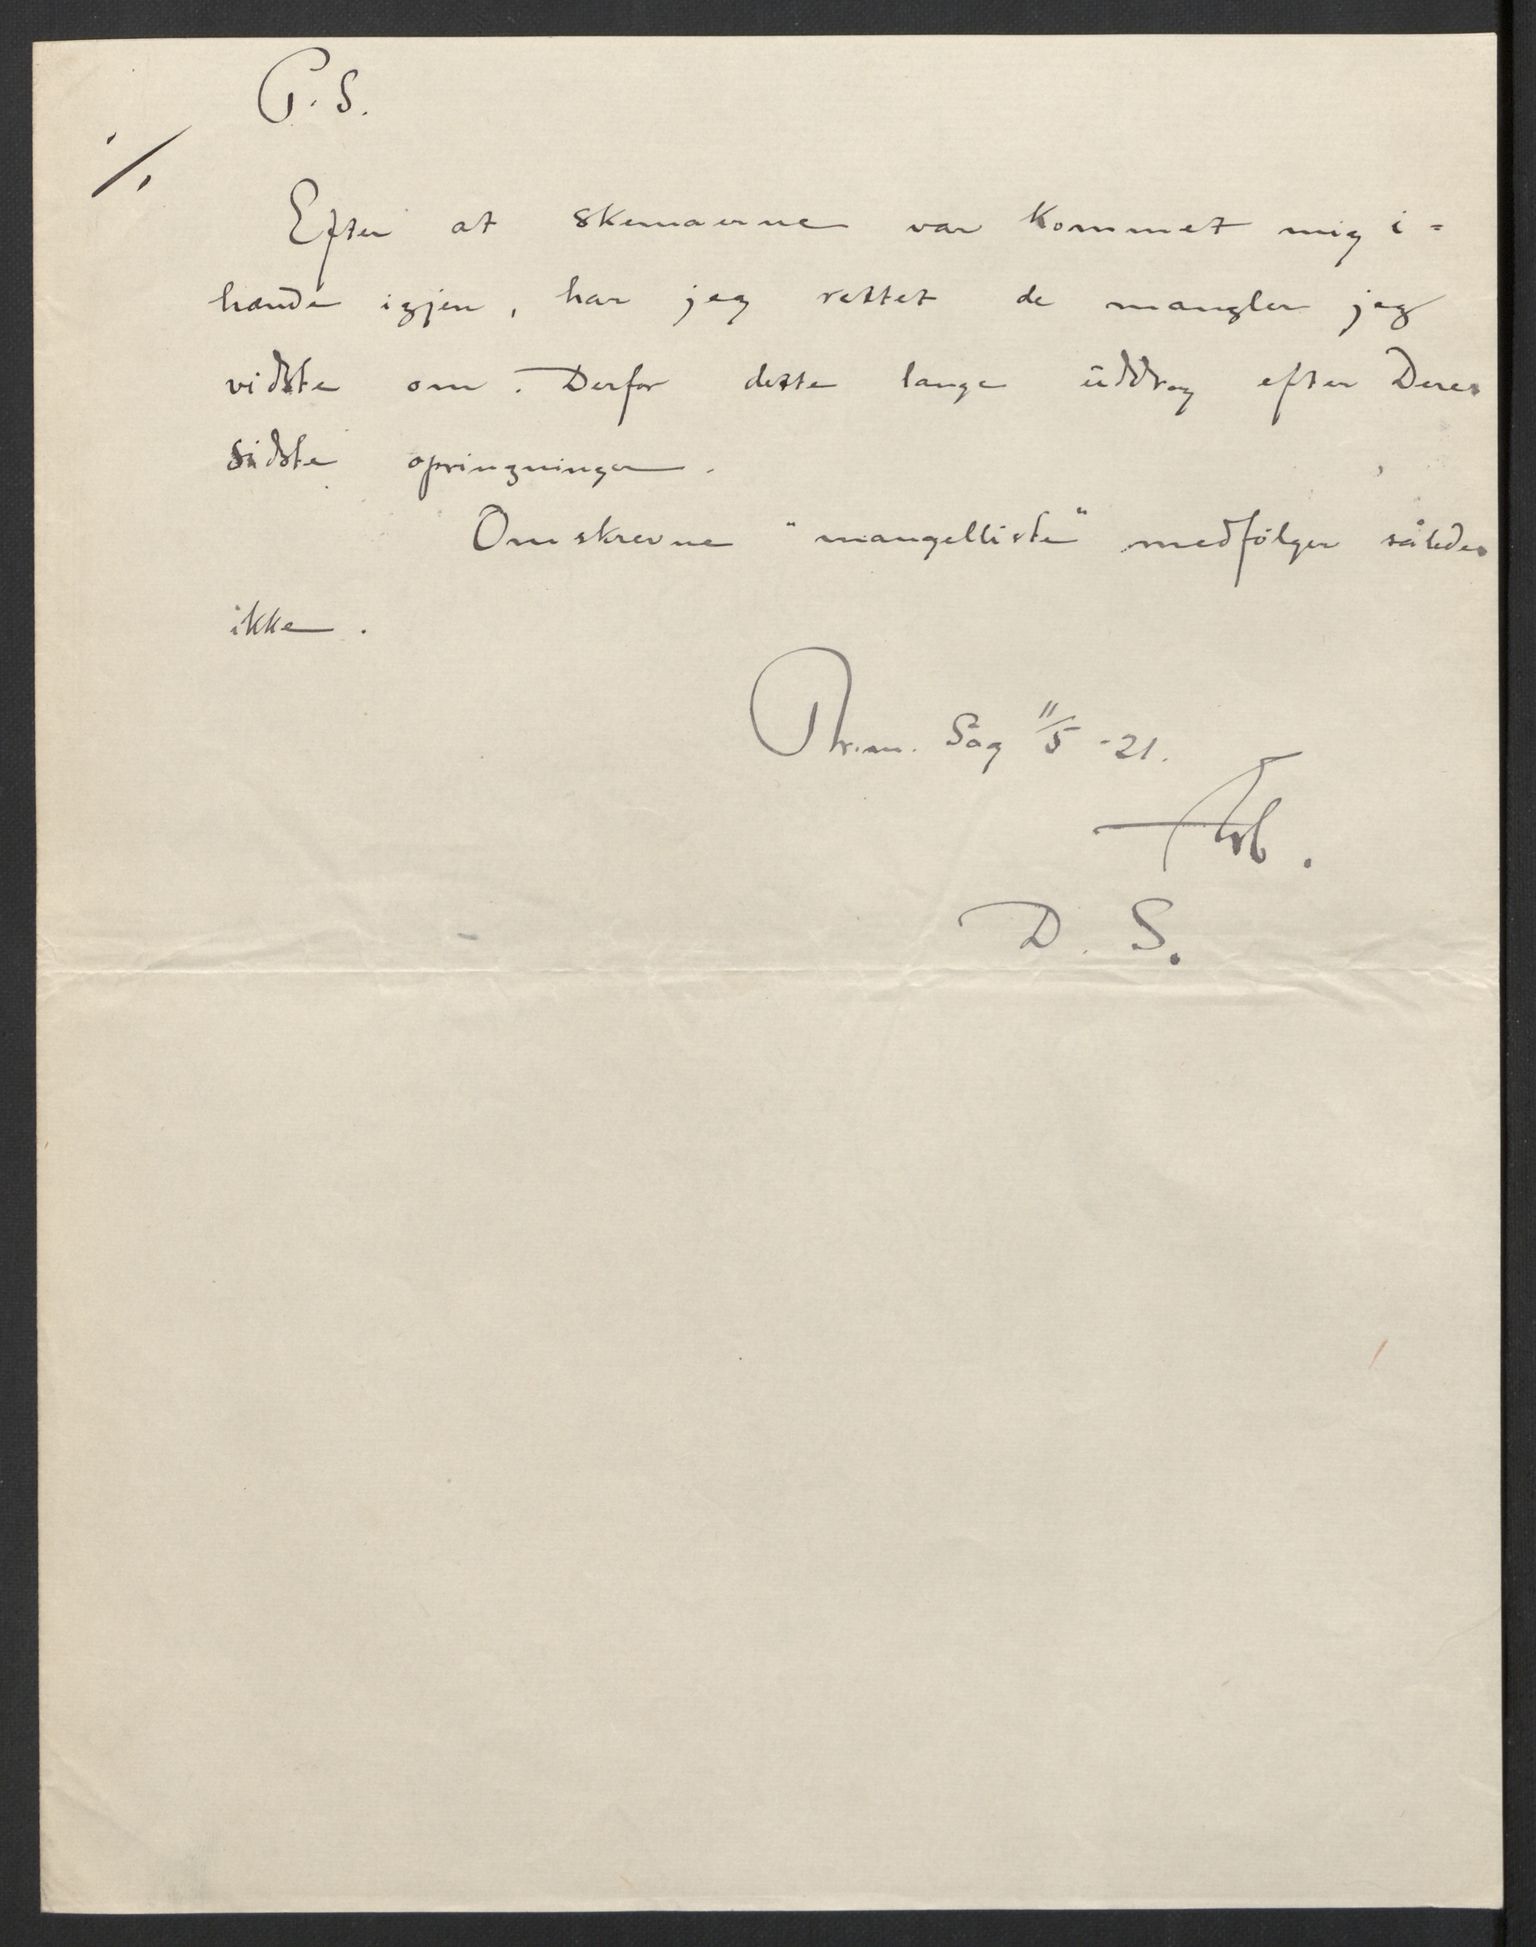 P. S.
·/.
Efter at skemaerne var kommet mig i=
hænde igjen, har jeg rettet de mangler jeg
vidste om. Derfor dette lange uddrag efter Deres
sidste opringninger.
Omskrevne "mangelliste" medfölger således
ikke.
11/5 -21.
D. S.